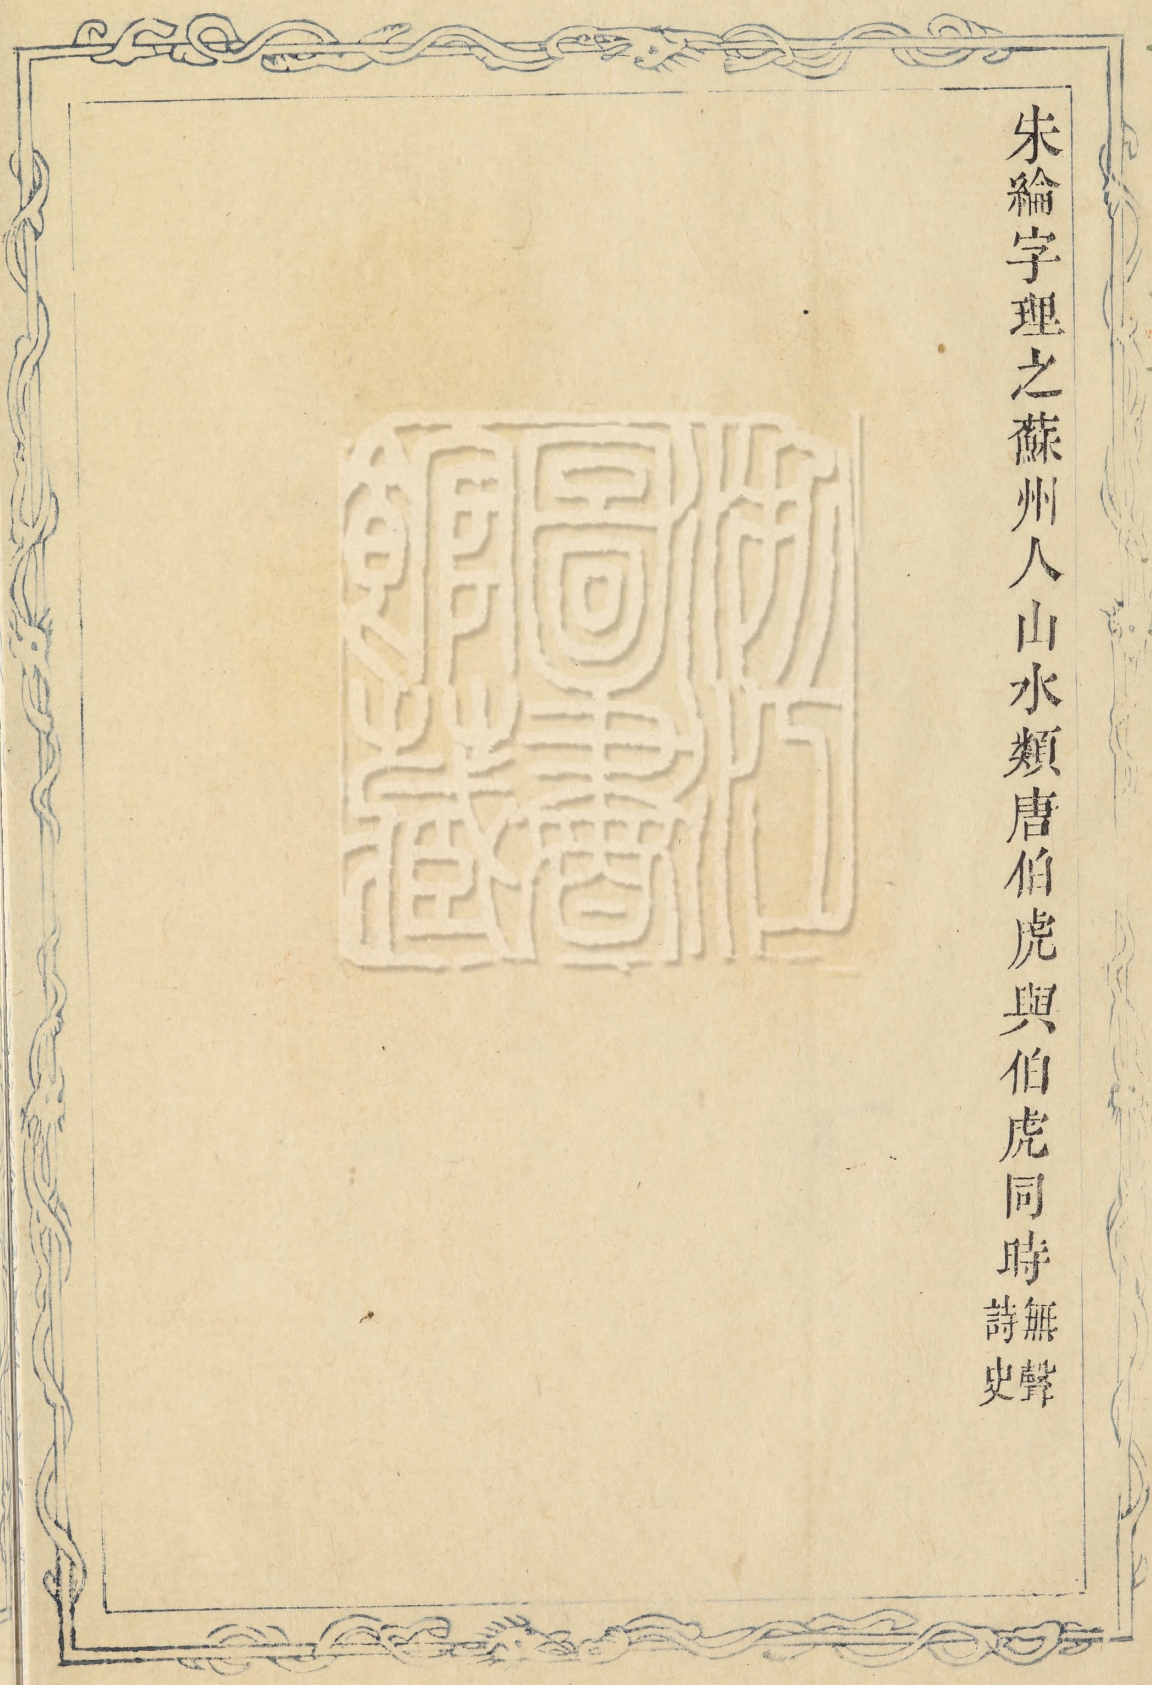 朱綸字理之蘇州人山水類唐伯虎與伯虎同時無聲詩史
浙江圖書館藏